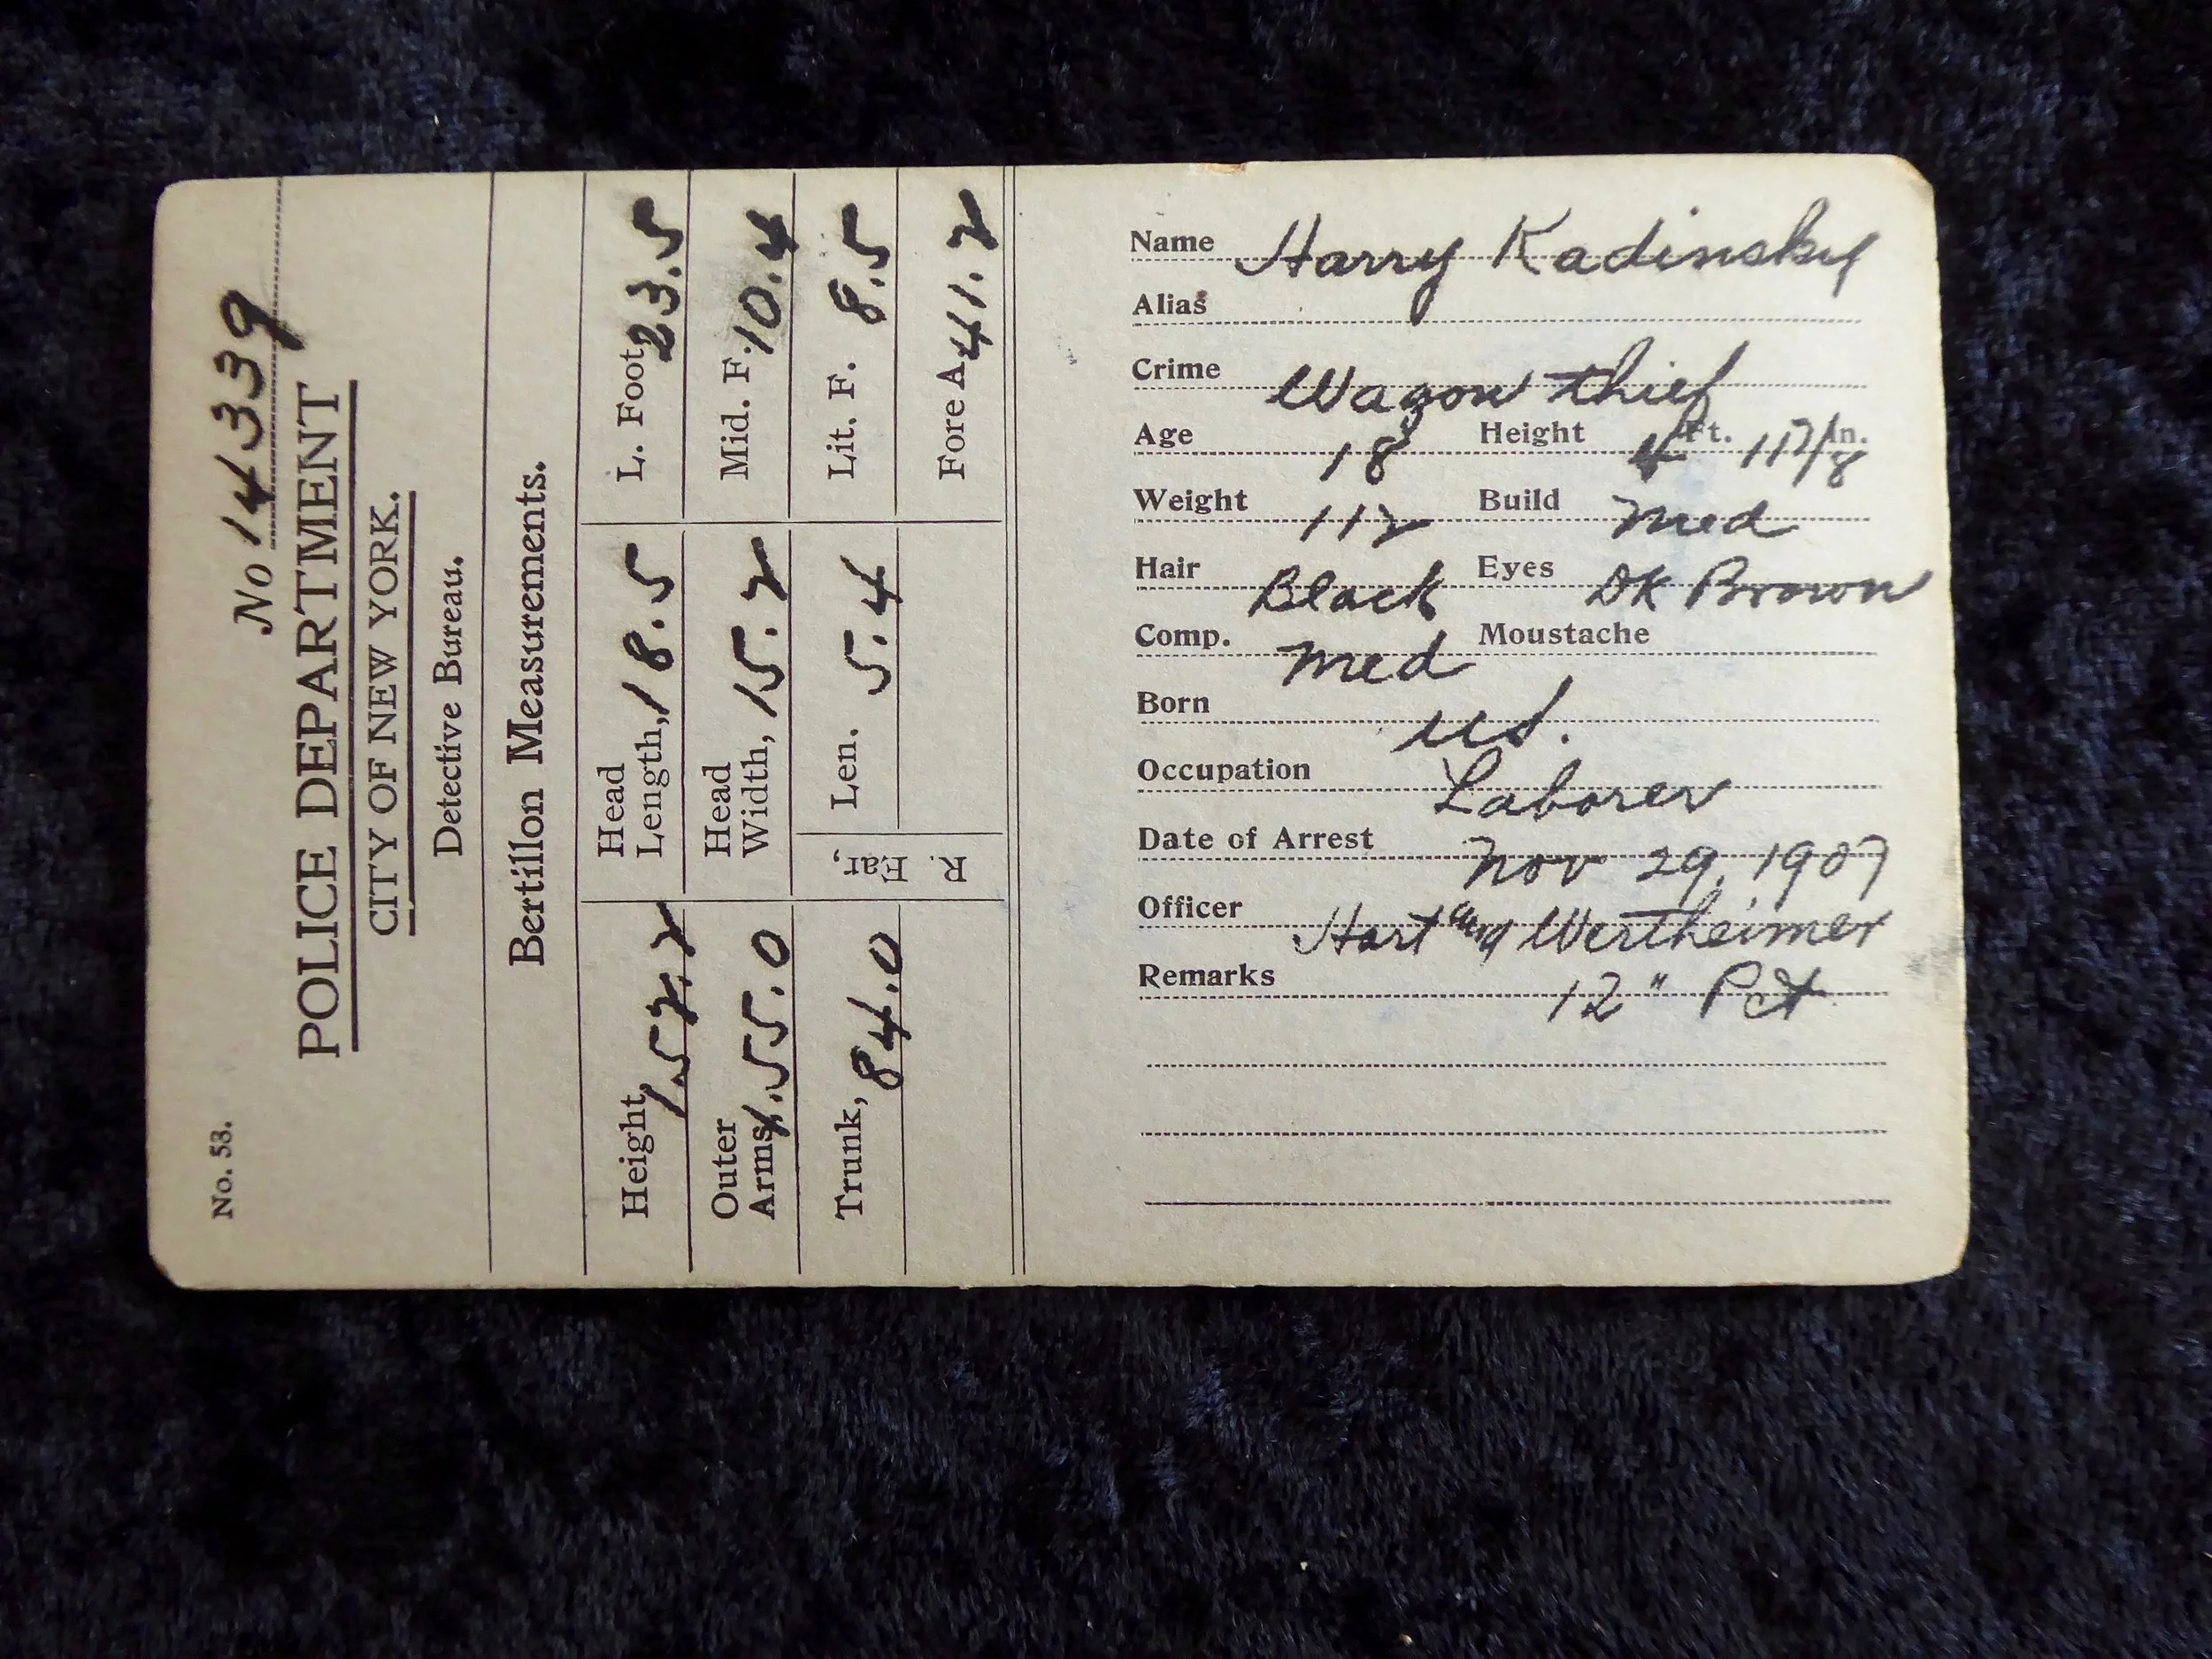 No. 53.
No 14339
POLICE DEPARTMENT
CITY OF NEW YORK.
Detective Bureau.
Bertillon Measurements.
Height, 1.52.2
Head Length, 18.5
L. Foot, 23.5
Outer Arms, 1.55.0
Head Width, 15.2
Mid. F. 10.4
Trunk, 84.0
R. Ear,
Len. 5.4
Lit. F. 8.5
Fore A. 41.2
Name Harry Kadinsky
Alias
Crime Wagon thief
Age 18 Height 4 Ft. 11 7/8 In.
Weight 112 Build Med
Hair Black Eyes DK Brown
Comp. Med Moustache
Born U.S.
Occupation Laborer
Date of Arrest Nov 29, 1907
Officer Hart and Wertheimer
Remarks 12" Pct